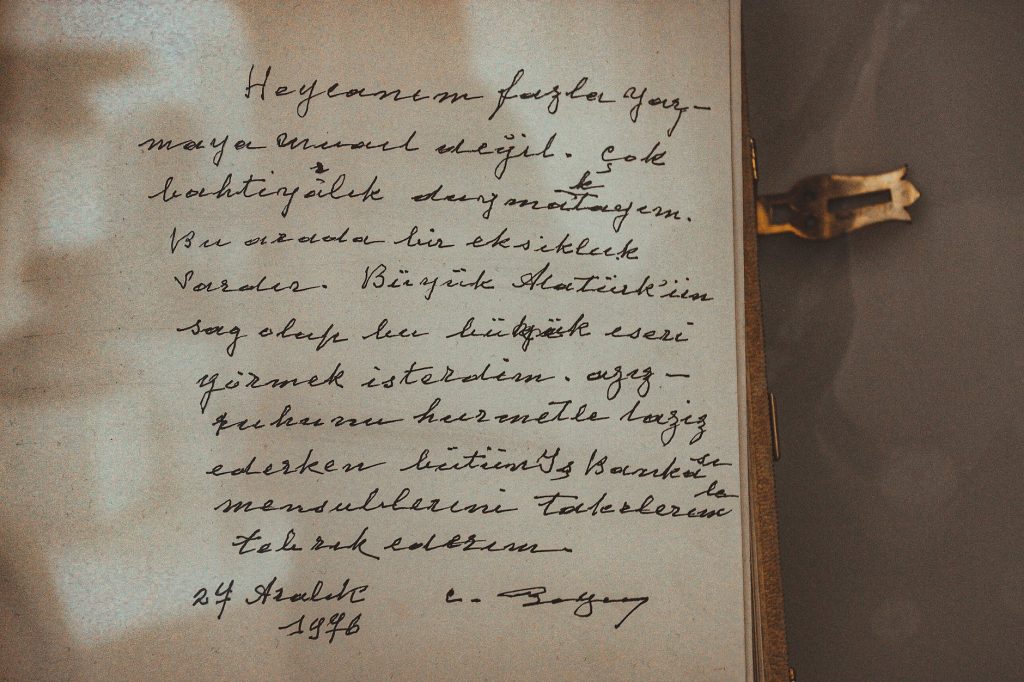 Heycanım fazla yaz-
maya musait değil. Çok
bahtiyarlık duymaktayım.
Bu arada bir eksikluk
vardır. Büyük Atatürk'ün
sag olup bu büyük eseri
görmek isterdim. aziz
ruhunu hurmetle taziz
ederken bütün İş Bankası
mensublerini takrlerimle
tebrik ederim.
27 Aralık C. Bayar
1976